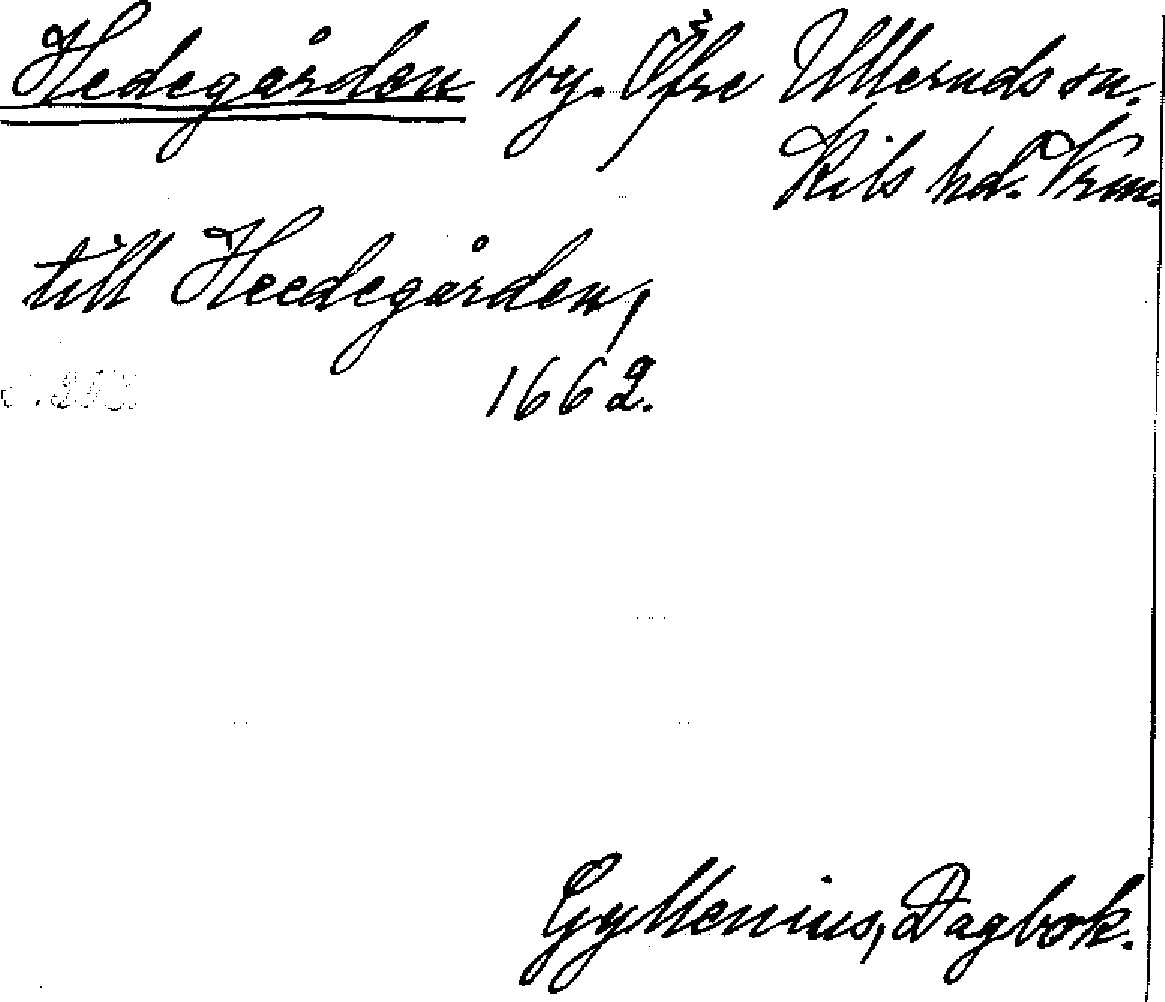 Hedegården by. Öfre Ulleruds sn.
Kils hd. Vrm.
till Heedegården,
1662.
Gyllenius, Dagbok.